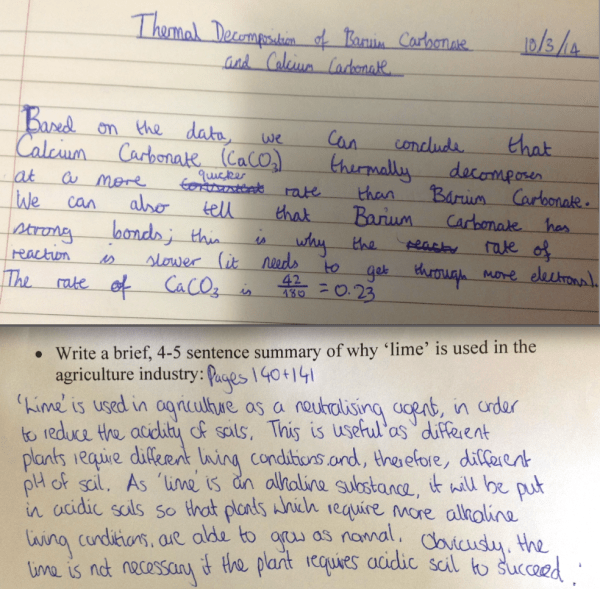 Thermal Decomposition of Barium Carbonate 10/3/14
and Calcium Carbonate
Based on the data, we can conclude that
Calcium Carbonate (CaCO₃) thermally decomposes
at a more quicker rate than Barium Carbonate.
We can also tell that Barium Carbonate has
strong bonds; this is why the rate of
reaction is slower (it needs to get through more electrons).
The rate of CaCO₃ is 42/180 = 0.23
• Write a brief, 4-5 sentence summary of why ‘lime’ is used in the
agriculture industry: Pages 140+141
'Lime' is used in agriculture as a neutralising agent, in order
to reduce the acidity of soils. This is useful as different
plants require different living conditions and, therefore, different
pH of soil. As 'lime' is an alkaline substance, it will be put
in acidic soils so that plants which require more alkaline
living conditions, are able to grow as normal. Obviously, the
lime is not necessary if the plant requires acidic soil to succeed.